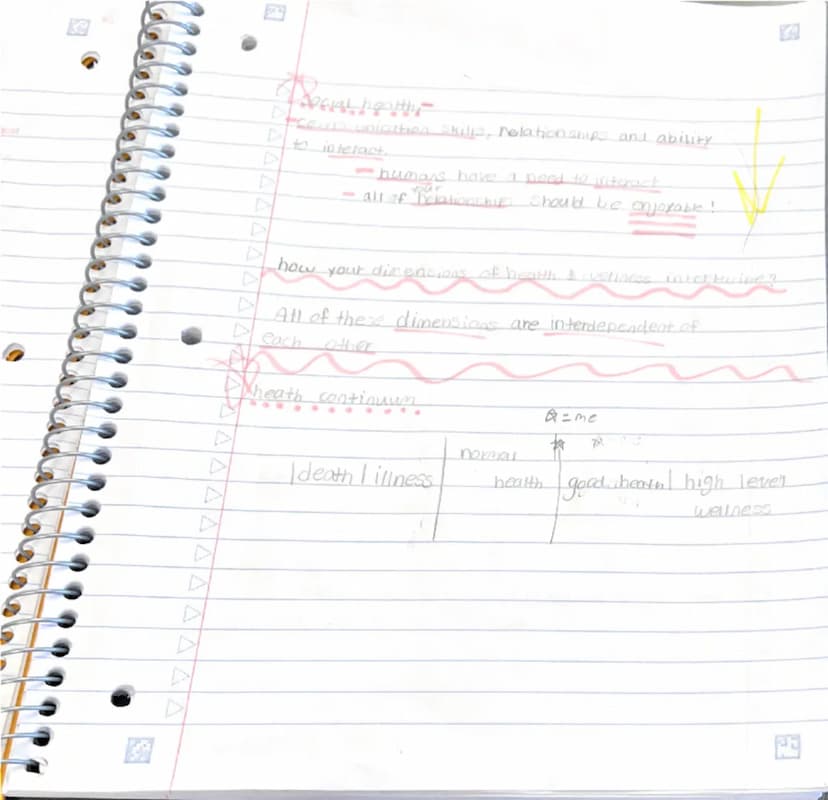 Social health -
communication skills, relationships and ability
to interact.
- humans have a need to interact
our
- all of relationships should be enjoyable!
how your dimencions of health & wellness intertwine?
All of these dimensions are interdependent of
each other
heath continuum
☆ = me
normal
|death | illness health good health | high level
wellness